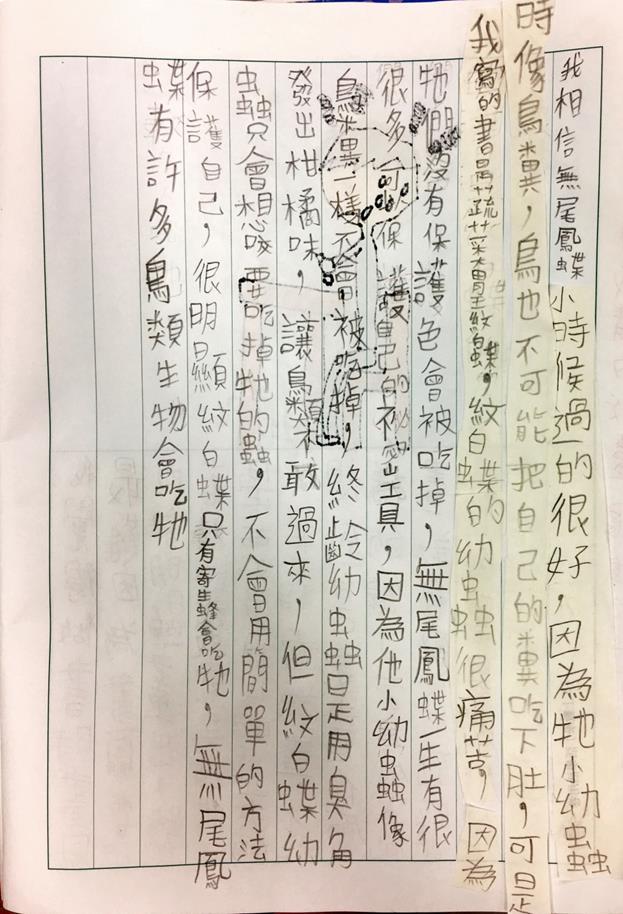 我相信無尾鳳蝶小時候過的很好，因為牠小幼蟲
時像鳥糞，鳥也不可能把自己的糞吃下肚，可是
我寫的書是蔬菜紋白蝶，紋白蝶的幼蟲很痛苦，因為
牠們沒有保護色會被吃掉，無尾鳳蝶一生有很
很多可保護自己的祕密工具，因為他小幼蟲像
鳥糞一樣不會被吃掉，終齡幼蟲是用臭角
發出柑橘味，讓鳥類不敢過來，但紋白蝶幼
蟲只會想咬要吃掉牠的蟲，不會用簡單的方法
保護自己，很明顯紋白蝶只有寄生蜂會吃牠，無尾鳳
蝶有許多鳥類生物會吃牠